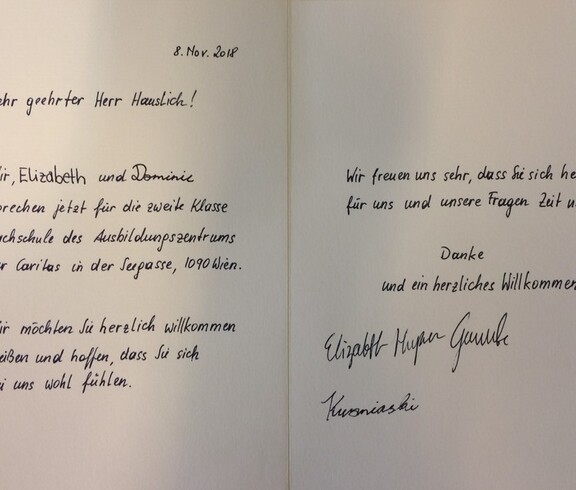 8. Nov. 2018
ehr geehrter Herr Hauslich!
ir, Elizabeth und Dominic
prechen jetzt für die zweite Klasse
achschule des Ausbildungszentrums
r Caritas in der Seegasse, 1090 Wien.
ir möchten Sie herzlich willkommen
eißen und hoffen, dass Sie sich
i uns wohl fühlen.
Wir freuen uns sehr, dass Sie sich he
für uns und unsere Fragen Zeit n
Danke
und ein herzliches Willkommen
Elizabeth